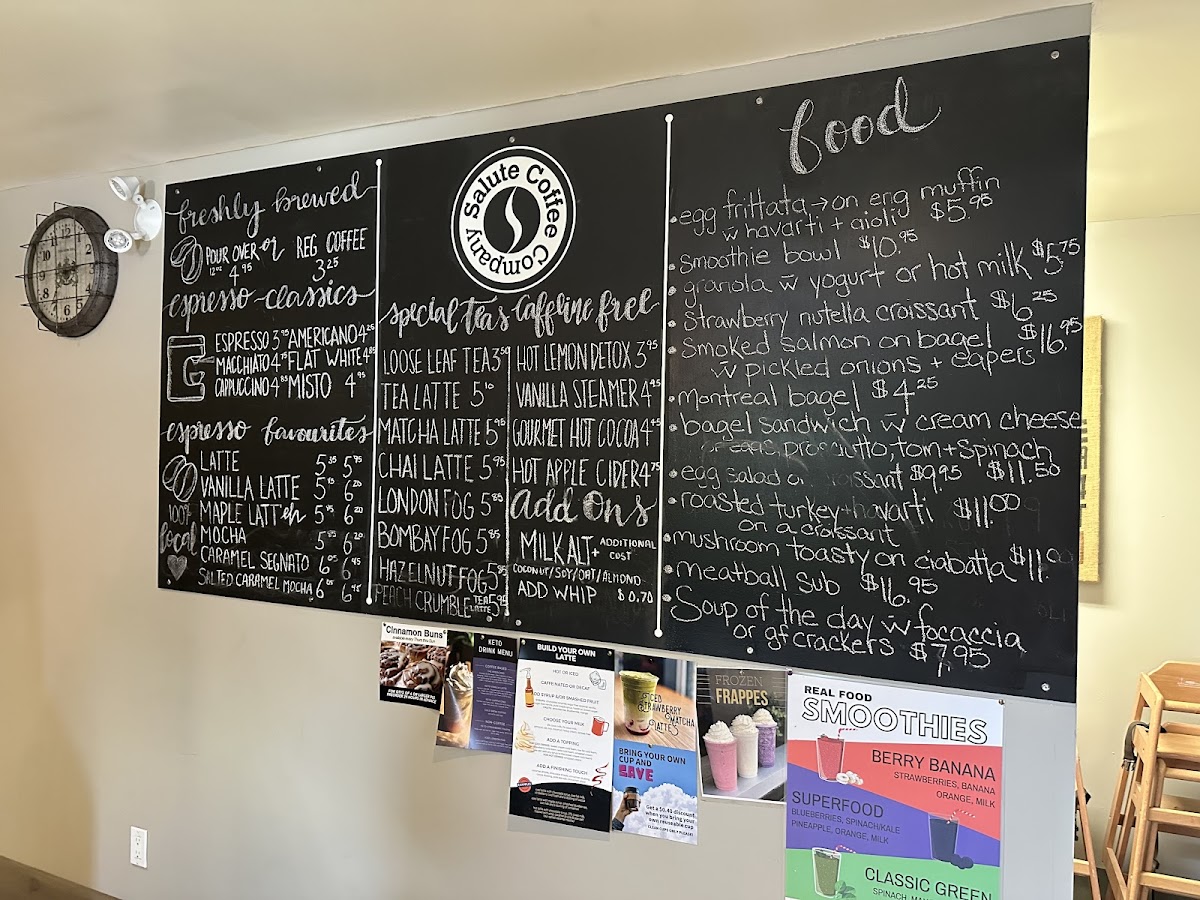 freshly brewed
POUR OVER or REG COFFEE
12oz 4.95 3.25
espresso classics
ESPRESSO 3.95 AMERICANO 4.25
MACCHIATO 4.75 FLAT WHITE 4.85
CAPPUCCINO 4.85 MISTO 4.95
espresso favourites
LATTE 5.35 5.75
VANILLA LATTE 5.95 6.20
MAPLE LATT'eh 5.95 6.20
MOCHA 5.95 6.20
CARAMEL SEGNATO 6.05 6.45
SALTED CARAMEL MOCHA 6.05 6.45
100%
local
Salute Coffee Company
special teas
LOOSE LEAF TEA 3.50
TEA LATTE 5.10
MATCHA LATTE 5.95
CHAI LATTE 5.95
LONDON FOG 5.85
BOMBAY FOG 5.85
HAZELNUT FOG 5.95
PEACH CRUMBLE TEA LATTE 5.95
caffeine free
HOT LEMON DETOX 3.95
VANILLA STEAMER 4.45
GOURMET HOT COCOA 4.45
HOT APPLE CIDER 4.75
Add Ons
MILK ALT + ADDITIONAL COST
COCONUT/SOY/OAT/ALMOND
ADD WHIP $0.70
food
egg frittata → on eng muffin
w havarti + aioli $5.95
Smoothie bowl $10.95
granola w yogurt or hot milk $5.75
Strawberry nutella croissant $6.25
Smoked salmon on bagel $16.95
w pickled onions + capers
Montreal bagel $4.25
bagel sandwich w cream cheese
prosciutto, tom + Spinach
$11.50
egg salad on croissant $9.95
roasted turkey + havarti $11.00
on a croissant
mushroom toasty on ciabatta $11.00
meatball sub $16.95
Soup of the day w focaccia
or gf crackers $7.95
"Cinnamon Buns"
KETO
DRINK MENU
BUILD YOUR OWN
LATTE
HOT OR ICED
CAFFEINATED OR DECAF
ADD SYRUP &/OR SMASHED FRUIT
CHOOSE YOUR MILK
ADD A TOPPING
ADD A FINISHING TOUCH
ICED
STRAWBERRY
MATCHA
LATTES
BRING YOUR OWN
CUP AND
SAVE
Get a $0.40 discount
when you bring your
own reuseable cup
CLEAN CUPS ONLY PLEASE!
FROZEN
FRAPPES
REAL FOOD
SMOOTHIES
BERRY BANANA
STRAWBERRIES, BANANA
ORANGE, MILK
SUPERFOOD
BLUEBERRIES, SPINACH/KALE
PINEAPPLE, ORANGE, MILK
CLASSIC GREEN